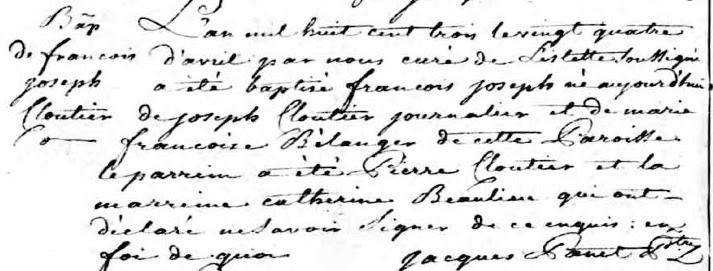 Bāp L'an mil huit cent trois le vingt quatre
de francois d'avril par nous curé de Lislette soussigné
joseph a été baptisé françois joseph né aujourd'hui
Cloutier de joseph Cloutier journalier et de marie
françoise Bélanger de cette Paroisse
le parrein a été Pierre Cloutier et la
marreine catherine Beaulieu qui ont
déclaré ne savoir signer de ce enquis : en
foi de quoi jacques Panet Ptre